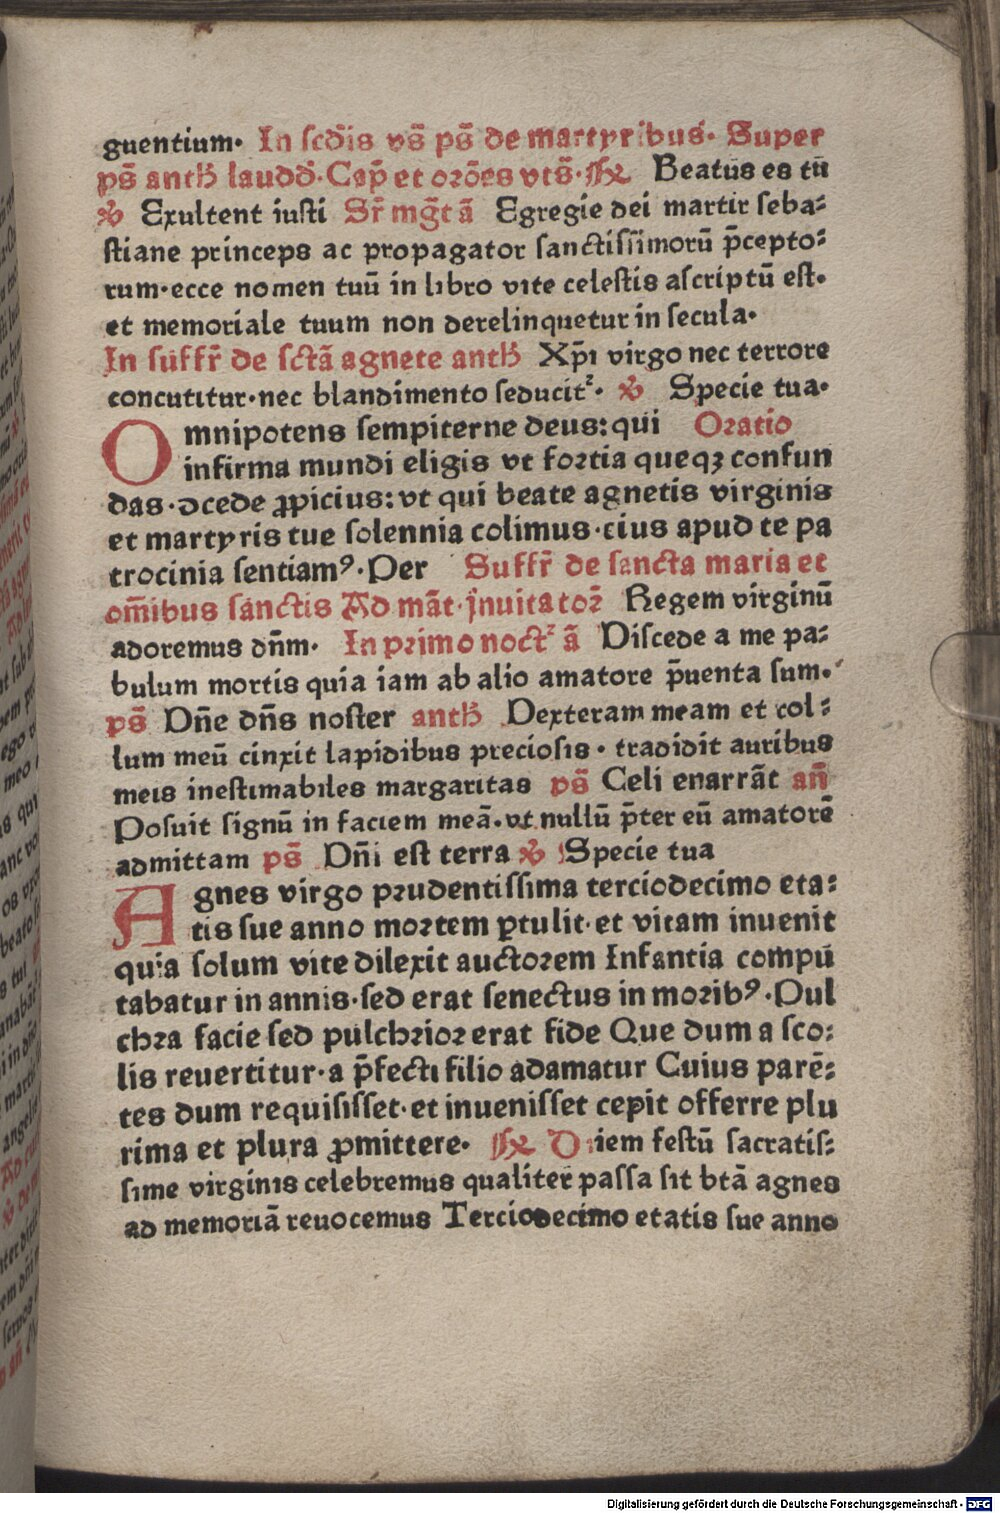 guentium. In scd̄is vs̄ ps̄ de martyribus. Super
ps̄ anth laudd. Cap̄ et orōes vts̄. Beatus es tū
Exultent iusti Sr̄ mḡt ā Egregie dei martir seba⸗
stiane princeps ac propagator sanctissimorū p̄cepto⸗
rum. ecce nomen tuū in libro vite celestis ascriptū est.
et memoriale tuum non derelinquetur in secula.
In suffr̄ de sctā agnete anth Xp̄i virgo nec terrore
concutitur. nec blandimento seducit᷑. Specie tua.
Omnipotens sempiterne deus: qui Oratio
infirma mundi eligis vt fortia queqꝫ confun
das. ꝯcede ꝓpicius: vt qui beate agnetis virginis
et martyris tue solennia colimus. eius apud te pa
trocinia sentiamꝰ. Per Suffr̄ de sancta maria et
om̄ibus sanctis Ad māt. jnuitator̄ Regem virginū
adoremus dn̄m. In primo noct᷑ ā Discede a me pa⸗
bulum mortis quia iam ab alio amatore p̄uenta sum.
ps̄ Dn̄e dn̄s noster anth Dexteram meam et col⸗
lum meū cinxit lapidibus preciosis. tradidit auribus
meis inestimabiles margaritas ps̄ Celi enarrāt an̄
Posuit signū in faciem meā. vt nullū p̄ter eū amatorē
admittam ps̄ Dn̄i est terra Specie tua
Agnes virgo prudentissima terciodecimo eta⸗
tis sue anno mortem ꝑtulit. et vitam inuenit
quia solum vite dilexit auctorem Infantia compū
tabatur in annis. sed erat senectus in moribꝰ. Pul
chra facie sed pulchrior erat fide Que dum a sco⸗
lis reuertitur. a p̄fecti filio adamatur Cuius parē⸗
tes dum requisisset. et inuenisset cepit offerre plu
rima et plura ꝓmittere. Diem festū sacratis⸗
sime virginis celebremus qualiter passa sit btā agnes
ad memoriā reuocemus Terciodecimo etatis sue anno
Digitalisierung gefördert durch die Deutsche Forschungsgemeinschaft - DFG